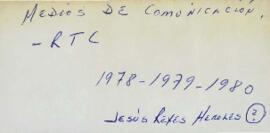 MEDIOS DE COMUNICACIÓN,
- RTC
1978-1979-1980
JESÚS REYES HEROLES (?)